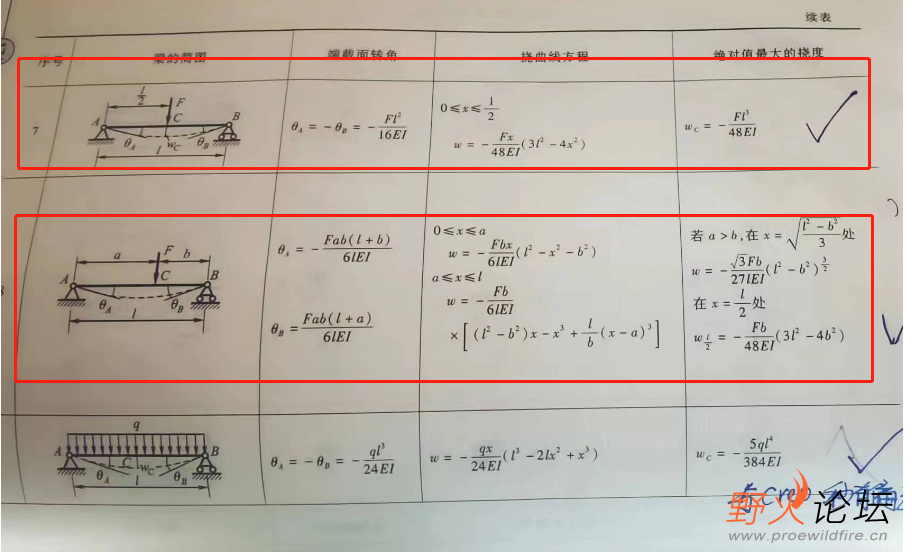 续表
序号 梁的简图 端截面转角 挠曲线方程 绝对值最大的挠度
7
l/2 F
A C B
θ_A w_C θ_B
l
θ_A = -θ_B = -Fl²/16EI
0≤x≤l/2
w = -Fx/48EI(3l²-4x²)
w_C = -Fl³/48EI
a F b
A C B
θ_A θ_B
l
θ_A = -Fab(l+b)/6lEI
θ_B = Fab(l+a)/6lEI
0≤x≤a
w = -Fbx/6lEI(l²-x²-b²)
a≤x≤l
w = -Fb/6lEI
×[(l²-b²)x-x³+l/b(x-a)³]
若 a>b,在 x = √((l²-b²)/3)处
w = -√3Fb/27lEI(l²-b²)^(3/2)
在 x = l/2处
w_(l/2) = -Fb/48EI(3l²-4b²)
q
A C w_C B
θ_A l θ_B
θ_A = -θ_B = -ql³/24EI
w = -qx/24EI(l³-2lx²+x³)
w_C = -5ql⁴/384EI
野火论坛
www.proewildfire.cn